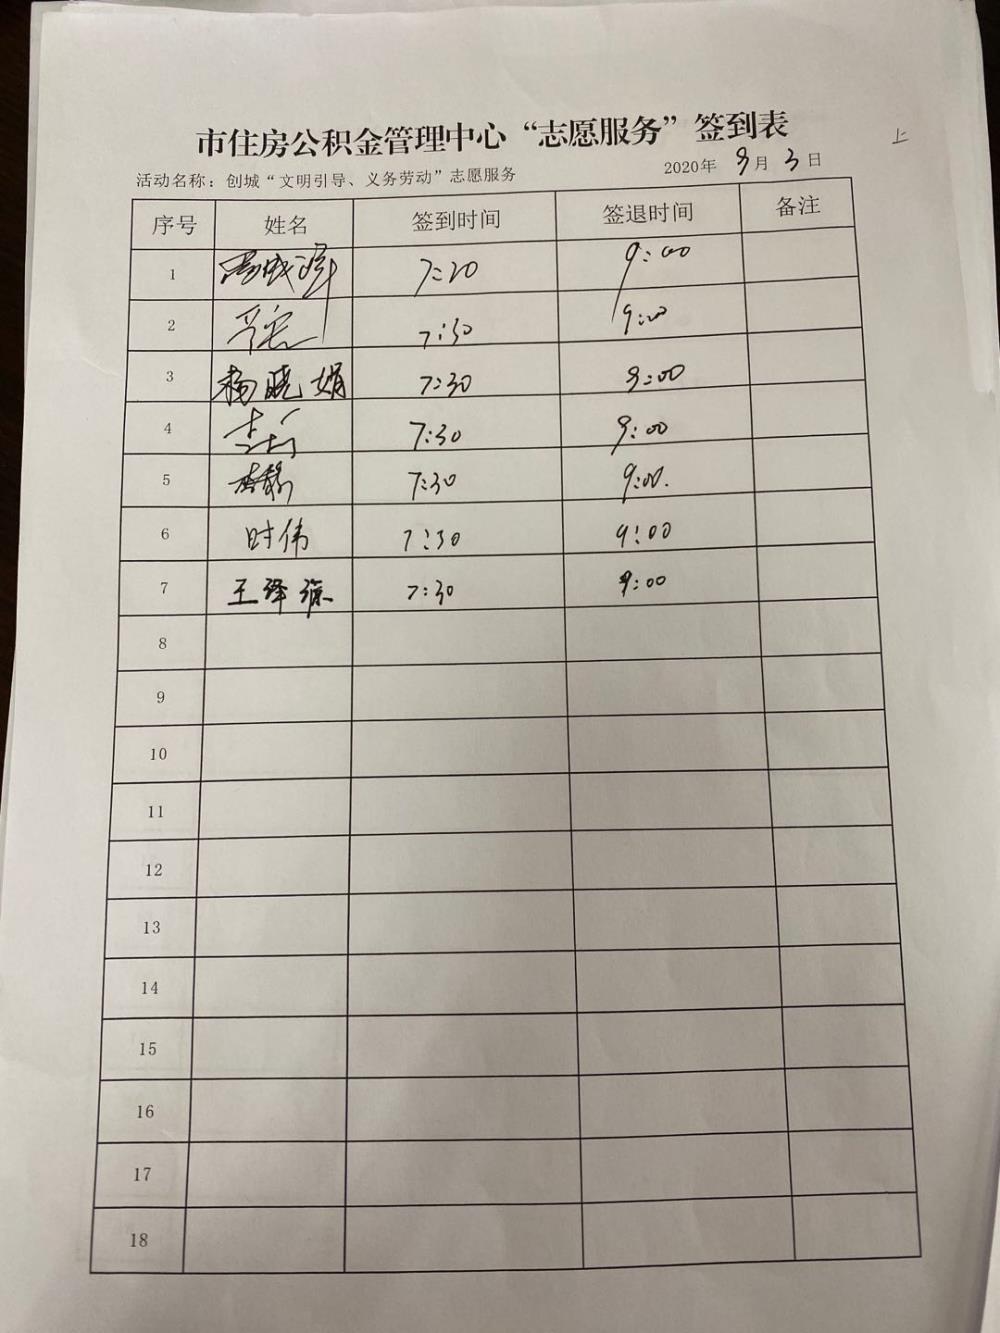 市住房公积金管理中心“志愿服务”签到表
上
活动名称：创城“文明引导、义务劳动”志愿服务 2020年 9月 3日
序号 姓名 签到时间 签退时间 备注
1 7:20 9:00
2 7:30 9:00
3 杨晓娟 7:30 9:00
4 7:30 9:00
5 7:30 9:00.
6 时伟 7:30 9:00
7 王泽 7:30 9:00
8
9
10
11
12
13
14
15
16
17
18